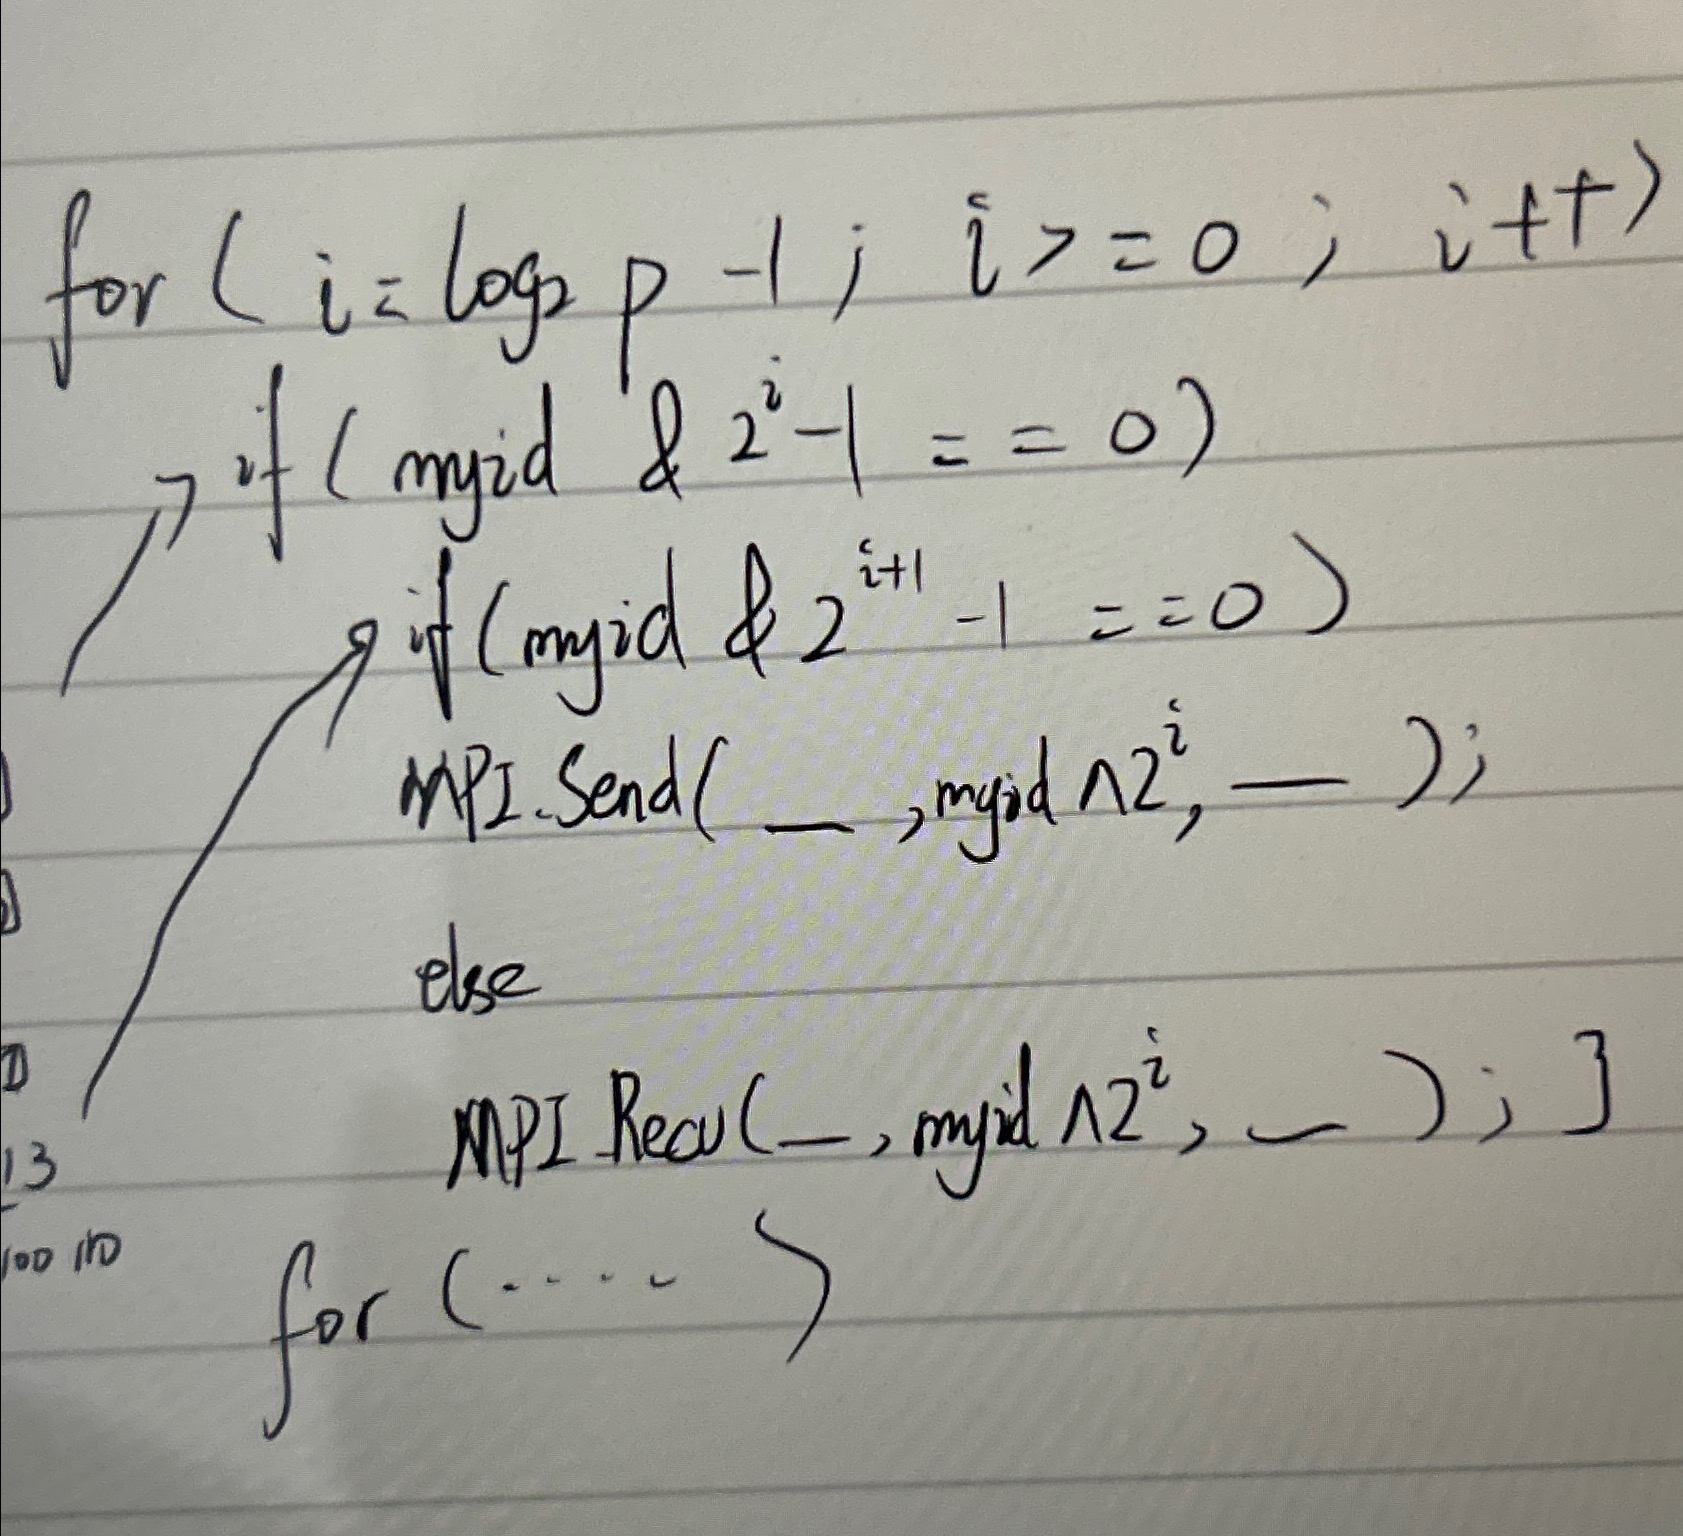 for ( i = log₂ p -1 ; i >= 0 ; i++)
if ( myid & 2ⁱ-1 == 0)
if ( myid & 2ⁱ⁺¹ -1 == 0 )
MPI_Send( __ , myid ∧2ⁱ, — );
else
MPI_Recv( — , myid ∧2ⁱ, — ) ; ]
13
100 110
for ( ····· )